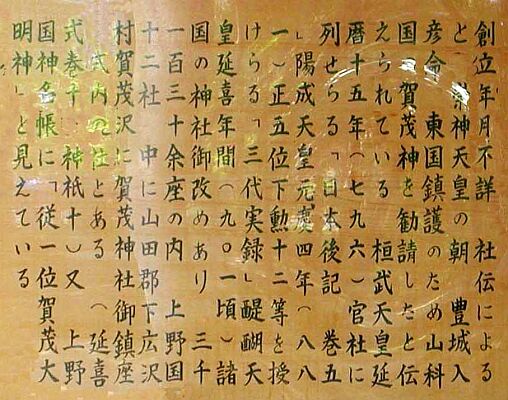 創立年月不詳 社伝による
と 崇神天皇の朝 豊城入
彦命 東国鎮護のため山科
国 賀茂神を勧請したと伝
えられている 桓武天皇延
暦十五年(七九六)官社に
列せらる「日本後記 巻五
」陽成天皇元慶四年(八八
一)正五位下勲十二等を授
けらる「三代実録」醍醐天
皇延喜年間(九〇一頃)諸
国の神社御改めあり 三千
一百三十余座の内 上野国
十二社 中に山田郡下広沢
村賀茂沢に賀茂神社御鎮座
式内の社とある (延喜
式巻子 神祇十)又 上野
国神名帳に「従一位賀茂大
明神」と見えている